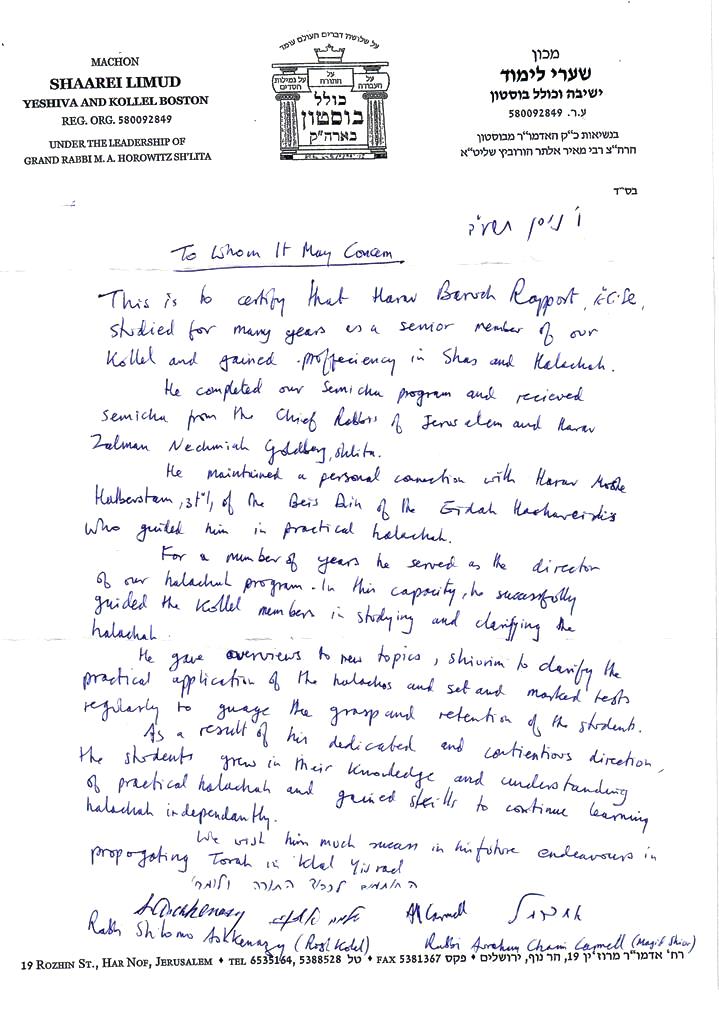 MACHON
SHAAREI LIMUD
YESHIVA AND KOLLEL BOSTON
REG. ORG. 580092849
UNDER THE LEADERSHIP OF
GRAND RABBI M. A. HOROWITZ SH'LITA
על שלושה דברים העולם עומד
על גמילות חסדים
על התורה
על העבודה
כולל
בוסטון
בארה"ק
מכון
שערי לימוד
ישיבה וכולל בוסטון
ע.ר. 580092849
בנשיאות כ"ק האדמו"ר מבוסטון
הרה"צ רבי מאיר אלתר הורוביץ שליט"א
בס"ד
ו' ניסן תשע"ב
To Whom It May Concern
This is to certify that Harav Baruch Rapport,
studied for many years as a senior member of our
Kollel and gained proffeciency in Shas and Halachah.
He completed our Semicha program and recieved
semicha from the Chief Rabbis of Jerusalem and Harav
Zalman Nechmiah Goldberg, shlita.
He maintained a personal connection with Harav Moshe
Halberstam, זצ"ל, of the Beis Din of the Eidah Hachareidis
who guided him in practical halachah.
For a number of years he served as the director
of our halachah program. In this capacity, he successfully
guided the Kollel members in studying and clarifying the
halachah.
He gave overviews to new topics, shiurim to clarify the
practical application of the halachos and set and marked tests
regularly to guage the grasp and retention of the students.
As a result of his dedicated and contientious direction,
the students grew in their knowledge and understanding
of practical halachah and gained skills to continue learning
halachah independantly.
We wish him much success in his future endeavours in
propogating Torah in Klal Yisrael
החותמים לכבוד התורה ולומדי'
S. Ashkenazy
AH Carmell
Rabbi Shlomo Ashkenazy (Rosh Kollel)
Rabbi Avraham Chaim Carmell (Magid Shiur)
19 ROZHIN ST., HAR NOF, JERUSALEM ♦ TEL 6535164, 5388528 טל ♦ FAX 5381367 פקס ♦ רח' אדמו"ר מרוז'ין 19, הר נוף, ירושלים